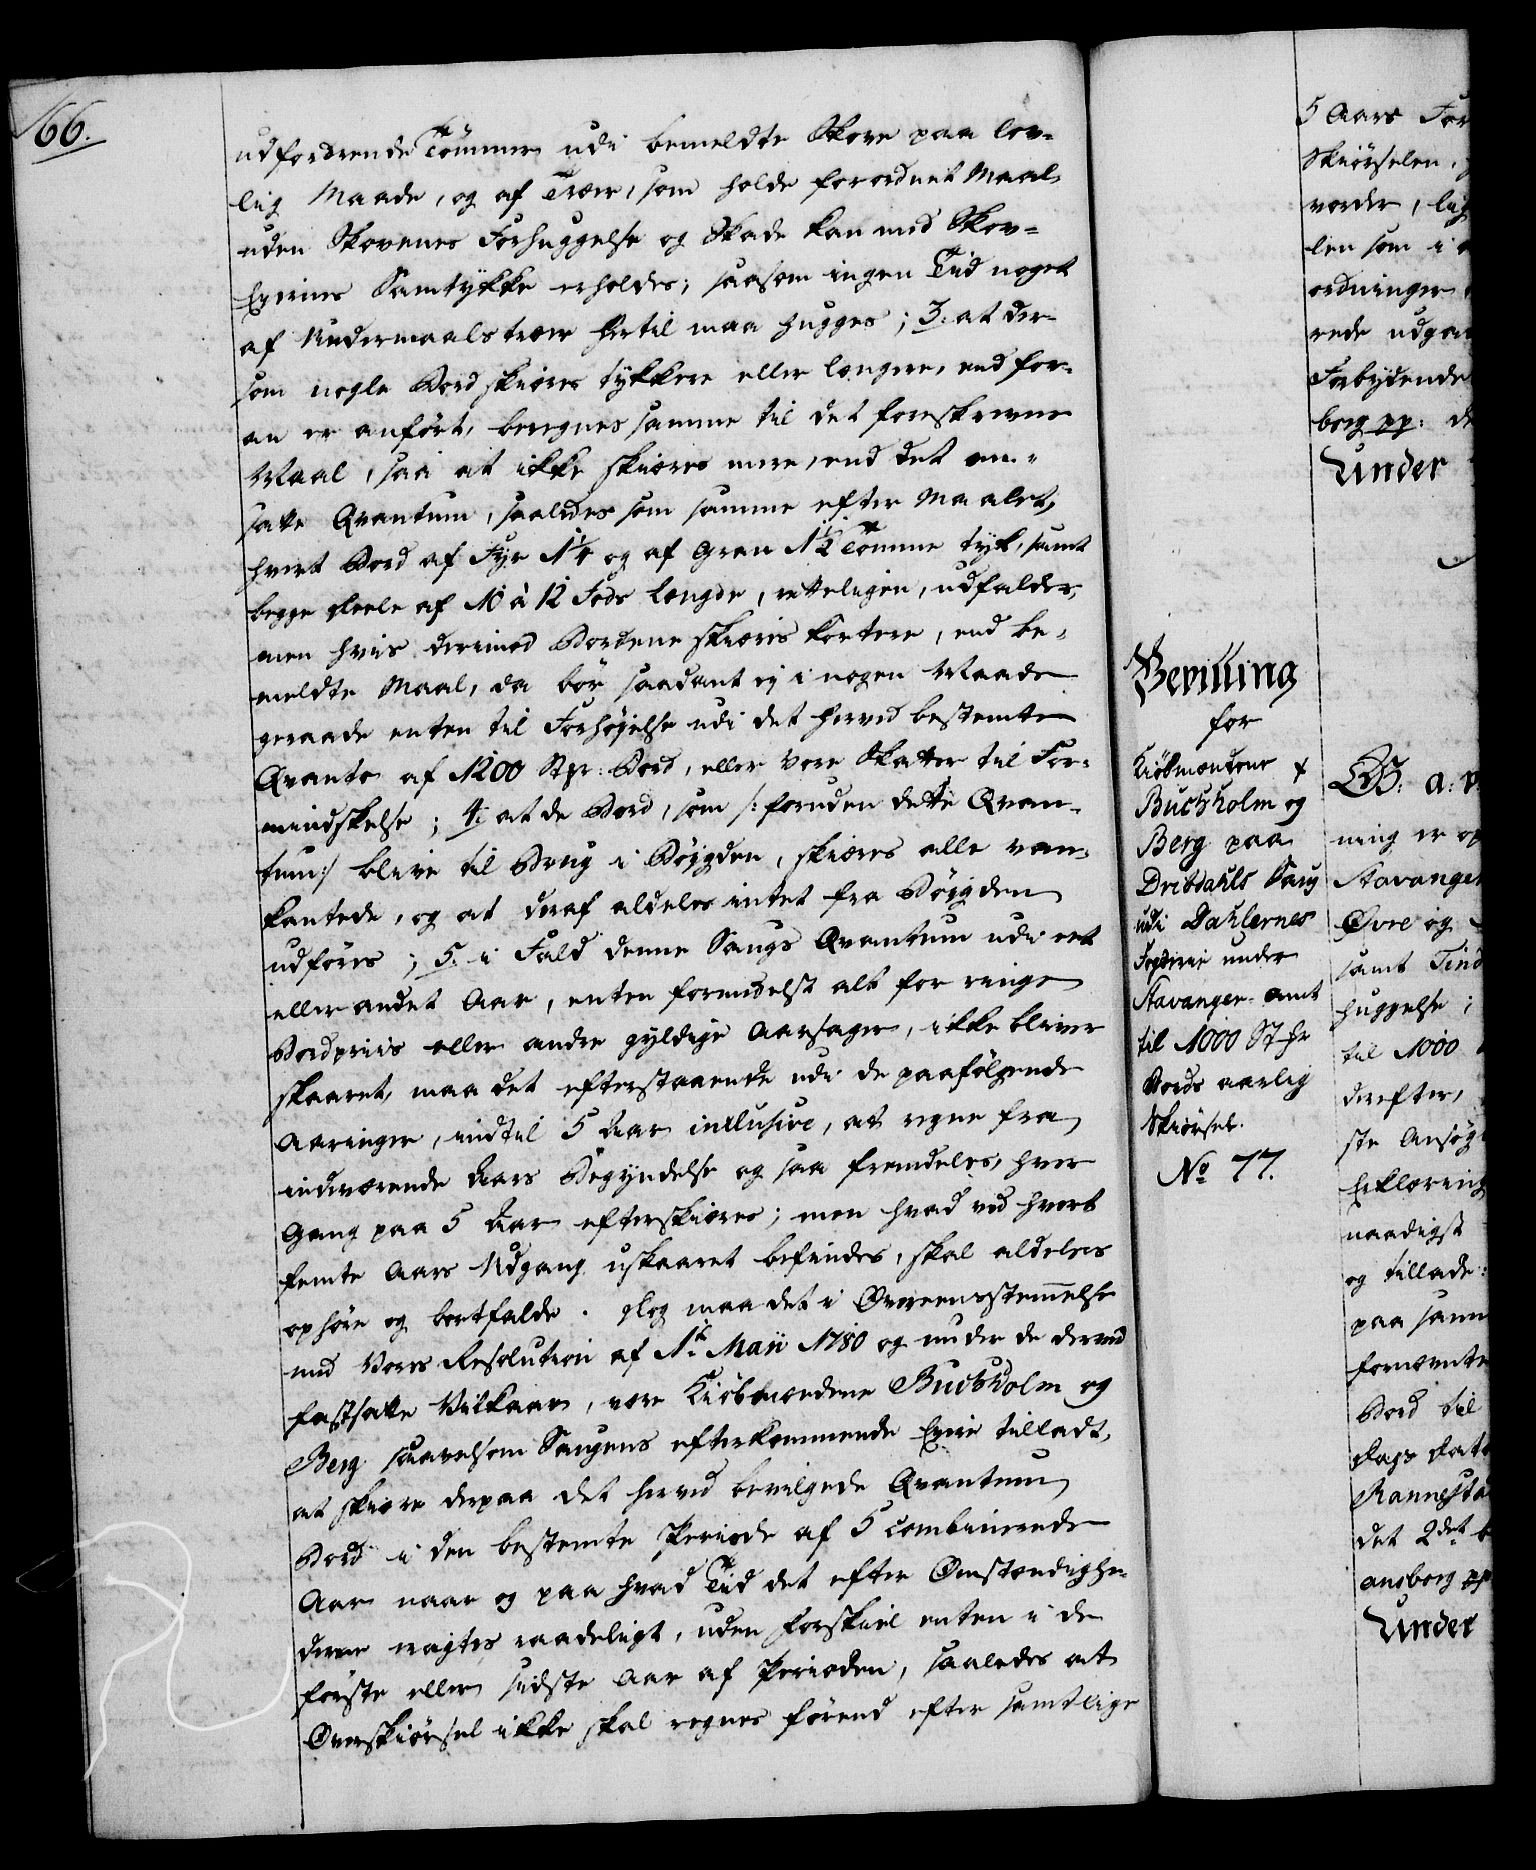 166.
udfordrende Tømmer udi bemeldte Skove paa lov-
lig Maade, og af Træer, som holde forordnet Maal,
uden Skovenes Forhuggelse og Skade kan med Skov-
Eyernes Samtykke erholdes; saasom ingen Tiid noget
af Undermaalstræer hertil maa hugges; 3: at der-
som nogle Bord skiæres tykkere eller længere, end for-
an er anført, beregnes samme til det foreskrevne
Maal, saa at ikke skiæres mere, end det an-
satte Qvantum, saaledes som samme efter Maalet,
hvert Bord af Fyr 1¼ og af Gran 1½ Tomme tyk, samt
begge Deele af 10 à 12 Fods Længde, retteligen, udfalder,
men hvis derimod Bordene skiæres kortere, end be-
meldte Maal, da bør saadant ej i nogen Maade
geraade enten til Forhøjelse udi det herved bestemte
Qvanto af 1200 Stkr: Bord, eller Vore Skatter til For-
mindskelse; 4: at de Bord, som /: foruden dette Qvan-
tum :/ blive til Brug i Bøygden, skiæres alle van-
kantede, og at deraf aldeles intet fra Bøygden
udføres; 5: i Fald denne Saugs Qvantum udi eet
eller andet Aar, enten formedelst alt for ringe
Bordpriis eller andre gyldige Aarsager, ikke bliver
skaaret, maa det efterstaaende udi de paafølgende
Aaringer, indtil 5 Aar inclusive, at regne fra
indeværende Aars Begyndelse og saa fremdeles, hver
Gang paa 5 Aar efterskiæres; men hvad ved hvert
femte Aars Udgang uskaaret befindes, skal aldeles
ophøre og bortfalde. Dog maa det i Overeensstemmelse
med Vores Resolution af 1te Maii 1780 og under de derved
fastsatte Vilkaar, være Kiøbmændene Buchholm og
Berg saavelsom Saugens efterkommende Eyere tilladt,
at skiære derpaa det herved bevilgede Qvantum
Bord i den bestemte Periode af 5 combinerede
Aar naar og paa hvad Tiid det efter Omstændighe-
derne eragtes raadeligt, uden Forskiel enten i de
første eller sidste Aar af Perioden, saaledes at
Overskiørsel ikke skal regnes førend efter samtlige
Bevilling
for
Kiøbmændene
Buchholm og
Berg paa
Dribdahls Saug
udi Dahlernes
Fogderie under
Stavanger-Amt
til 1000 St-kr
Bords aarlig
Skiørsel.
No 77.
5 Aars For
Skiørselen,
vorder, lig
len som i
ordninger
rede udgan
Forbydende
borg pp: d
Under
G: a: v
ning er op
Stavanger
Øvre og
samt Tind
huggelse;
til 1000
derefter,
ste Ansøg
Erklæring
naadigst
og tillade:
paa samm
fornævnte
Bord til
Dags Dato
Rannesta
det 2det
ansborg pp
Under